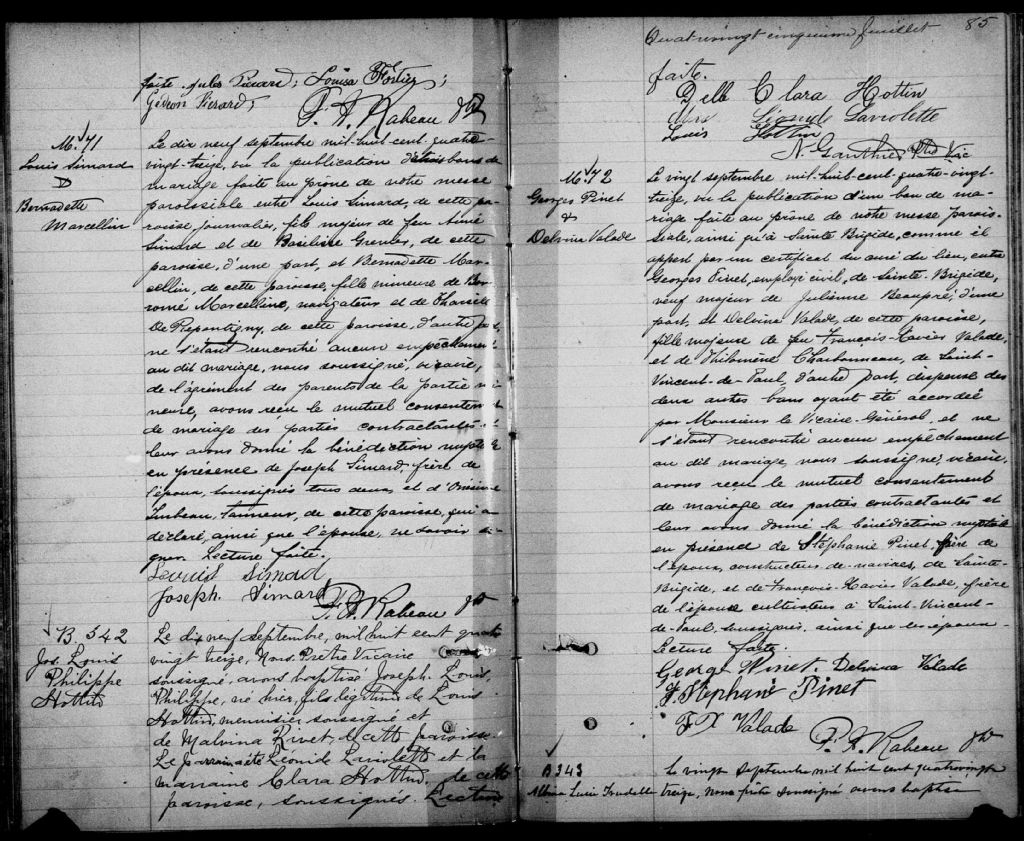 faite. Jules Picard; Louisa Fortier;
Gédéon Picard;
P. A. Rabeau ptr
M. 71
Louis Simard
D
Bernadette
Marcellin
Le dix neuf septembre mil-huit-cent-quatre-
vingt-treize, vu la publication de trois bans de
mariage faite au prône de notre messe
paroissiale entre Louis Simard, de cette pa-
roisse, journalier, fils majeur de feu Aimé
Simard et de Basilisse Grenier, de cette
paroisse, d'une part, et Bernadette Mar-
cellin, de cette paroisse, fille mineure de Bor-
romé Marcelline, navigateur et de
De Repentigny, de cette paroisse, d'autre part,
ne s'étant rencontré aucun empêchement
au dit mariage, nous soussigné, vicaire,
de l'agrément des parents de la partie mi-
neure, avons reçu le mutuel consentement
de mariage des parties contractantes et
leur avons donné la bénédiction nuptiale
en présence de Joseph Simard, frère de
l'époux, soussignés tous deux, et d'Onésime
Imbeau, tanneur, de cette paroisse, qui a
déclaré, ainsi que l'épouse, ne savoir si-
gner. Lecture faite.
Louis Simard
Joseph Simard
P. A. Rabeau ptr
B. 342
Jos. Louis
Philippe
Hottin
Le dix neuf septembre, mil huit cent quatre
vingt treize, Nous Prêtre Vicaire
soussigné, avons baptisé Joseph, Louis,
Philippe, né hier, fils légitime de Louis
Hottin, menuisier soussigné et
de Malvina Rivet, de cette paroisse
Le parrain a été Léonide Laviolette et la
marraine Clara Hottin, de cette
paroisse, soussignés. Lecture
Quatrevingt cinquième feuillet 85
faite.
Delle Clara Hottin
Léonide Laviolette
Louis Hottin
N. Gauthier Ptre Vic
M. 72
Georges Pinet
&
Delvina Valade
Le vingt septembre mil-huit-cent-quatre-vingt-
treize, vu la publication d'un ban de ma-
riage faite au prône de notre messe parois-
siale, ainsi qu'à Sainte Brigide, comme il
appert par un certificat du curé du lieu, entre
Georges Pinet, employé civil, de Sainte-Brigide,
veuf majeur de Julienne Beaupré, d'une
part, et Delvina Valade, de cette paroisse,
fille majeure de feu François-Xavier Valade,
et de Philomène Charbonneau, de Saint-
Vincent-de-Paul, d'autre part, dispense des
deux autres bans ayant été accordée
par Monsieur le Vicaire-Général, et ne
s'étant rencontré aucun empêchement
au dit mariage, nous soussigné, vicaire,
avons reçu le mutuel consentement
de mariage des parties contractantes et
leur avons donné la bénédiction nuptiale
en présence de Stéphanie Pinet, frère de
l'époux, constructeur de navires, de Sainte-
Brigide, et de François-Xavier Valade, frère
de l'épouse cultivateur à Saint-Vincent-
de-Paul, soussignés, ainsi que les époux
Lecture faite.
George Pinet. Delvina Valade
F. Stephane Pinet
F X Valade
P. A. Rabeau ptr
B 343
Albina Lucie Trudelle
Le vingt septembre mil huit cent quatrevingt
treize, nous prêtre soussigné avons baptisé